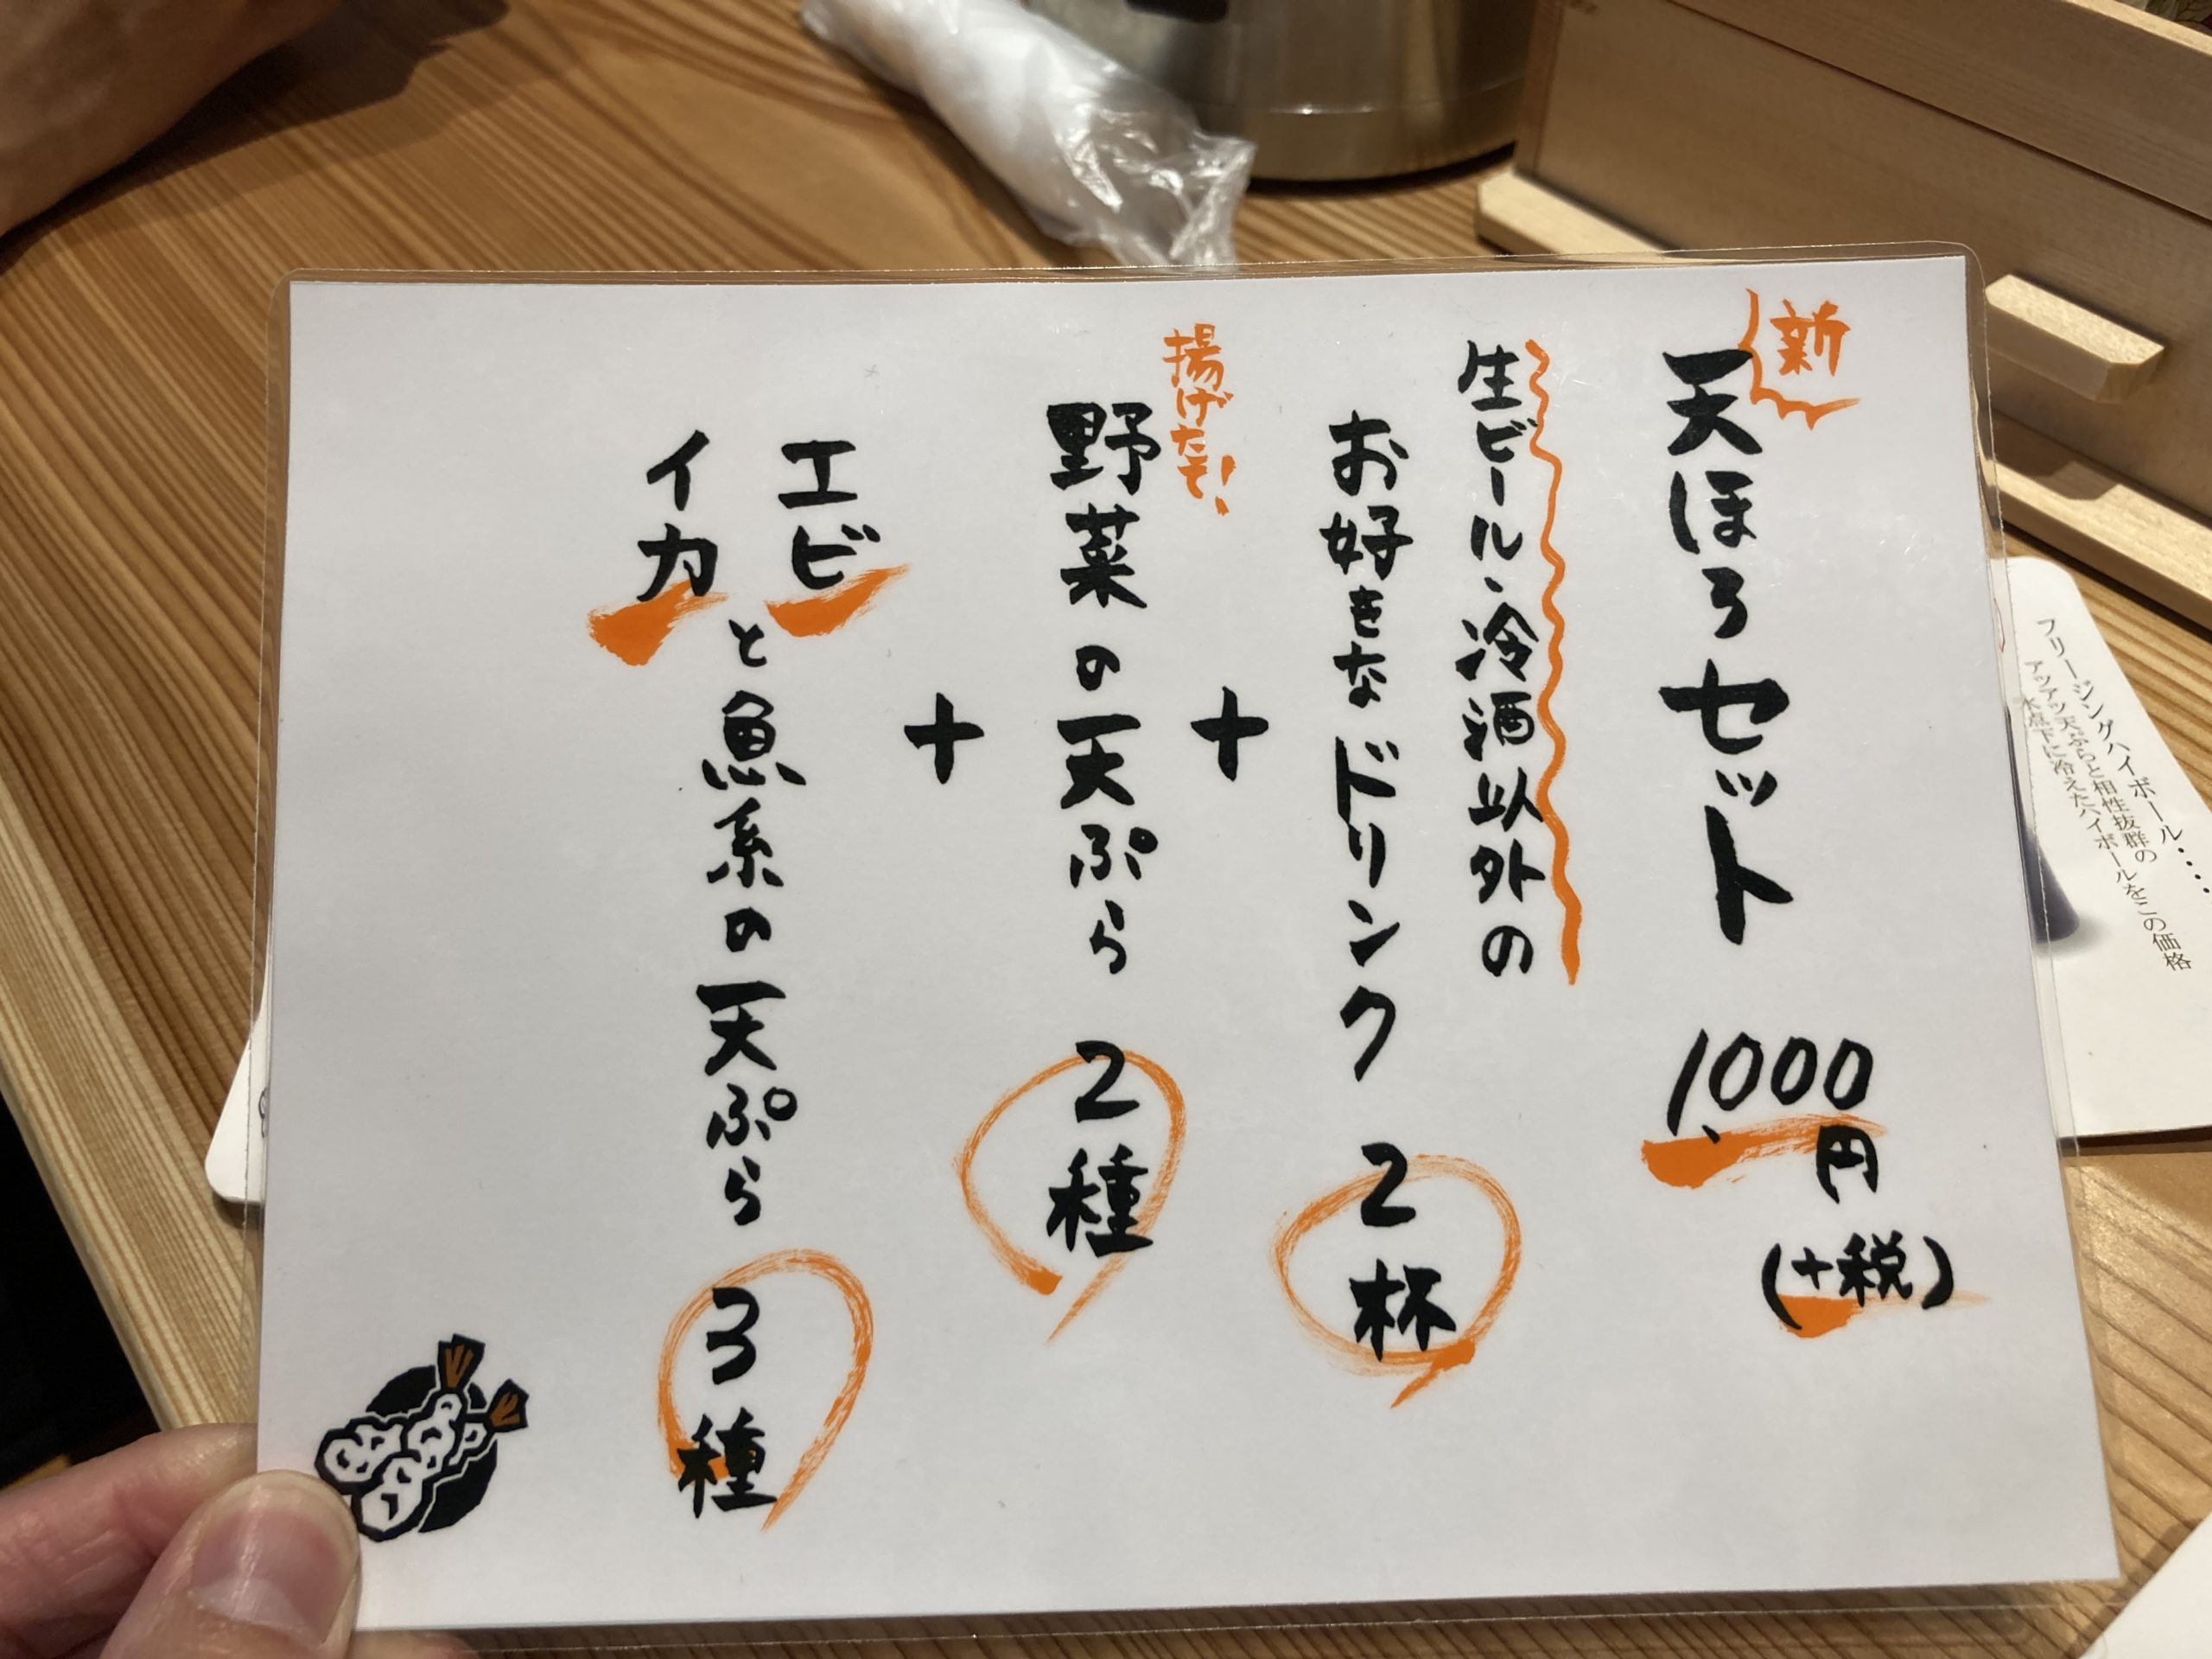 新
天ほろセット 1,000円(+税)
生ビール・冷酒以外の
お好きなドリンク 2杯
+
揚げたて!
野菜の天ぷら 2種
+
エビ
イカ
と魚系の天ぷら 3種
フリージングハイボール....
アツアツ天ぷらと相性抜群の
氷点下に冷えたハイボールをこの価格